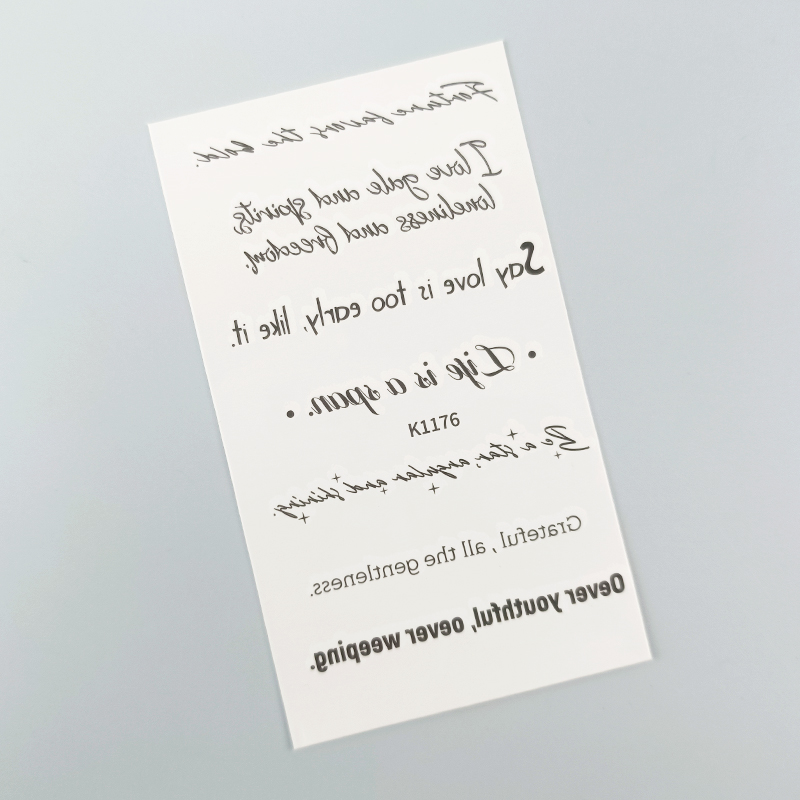 Fortune favors the bold.
I love gale and spirits,
loneliness and freedom.
Say love is too early, like it.
• Life is a span. •
K1176
Be a star, angular and shining.
Grateful, all the gentleness.
Oever youthful, oever weeping.